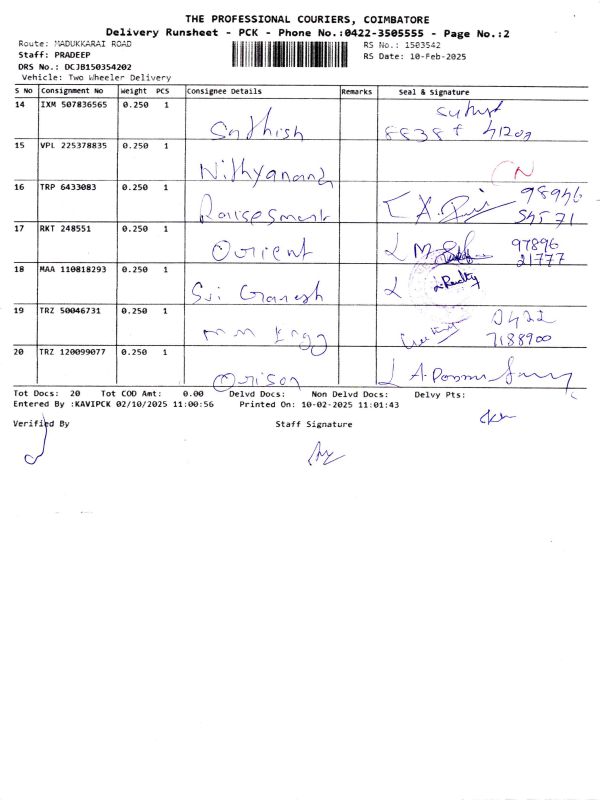 THE PROFESSIONAL COURIERS, COIMBATORE
Delivery Runsheet - PCK - Phone No.:0422-3505555 - Page No.:2
Route: MADUKKARAI ROAD
Staff: PRADEEP
DRS No.: DCJB150354202
Vehicle: Two Wheeler Delivery
RS No.: 1503542
RS Date: 10-Feb-2025
S No Consignment No Weight PCS Consignee Details Remarks Seal & Signature
14 IXM 507836565 0.250 1 Sathish
15 VPL 225378835 0.250 1 Nithyanand
16 TRP 6433083 0.250 1 98946
17 RKT 248551 0.250 1 Orient 97896 21777
18 MAA 110818293 0.250 1 Sri Ganesh
19 TRZ 50046731 0.250 1 0422 7188900
20 TRZ 120099077 0.250 1 Orison
Tot Docs: 20 Tot COD Amt: 0.00 Delvd Docs: Non Delvd Docs: Delvy Pts:
Entered By :KAVIPCK 02/10/2025 11:00:56 Printed On: 10-02-2025 11:01:43
Verified By Staff Signature